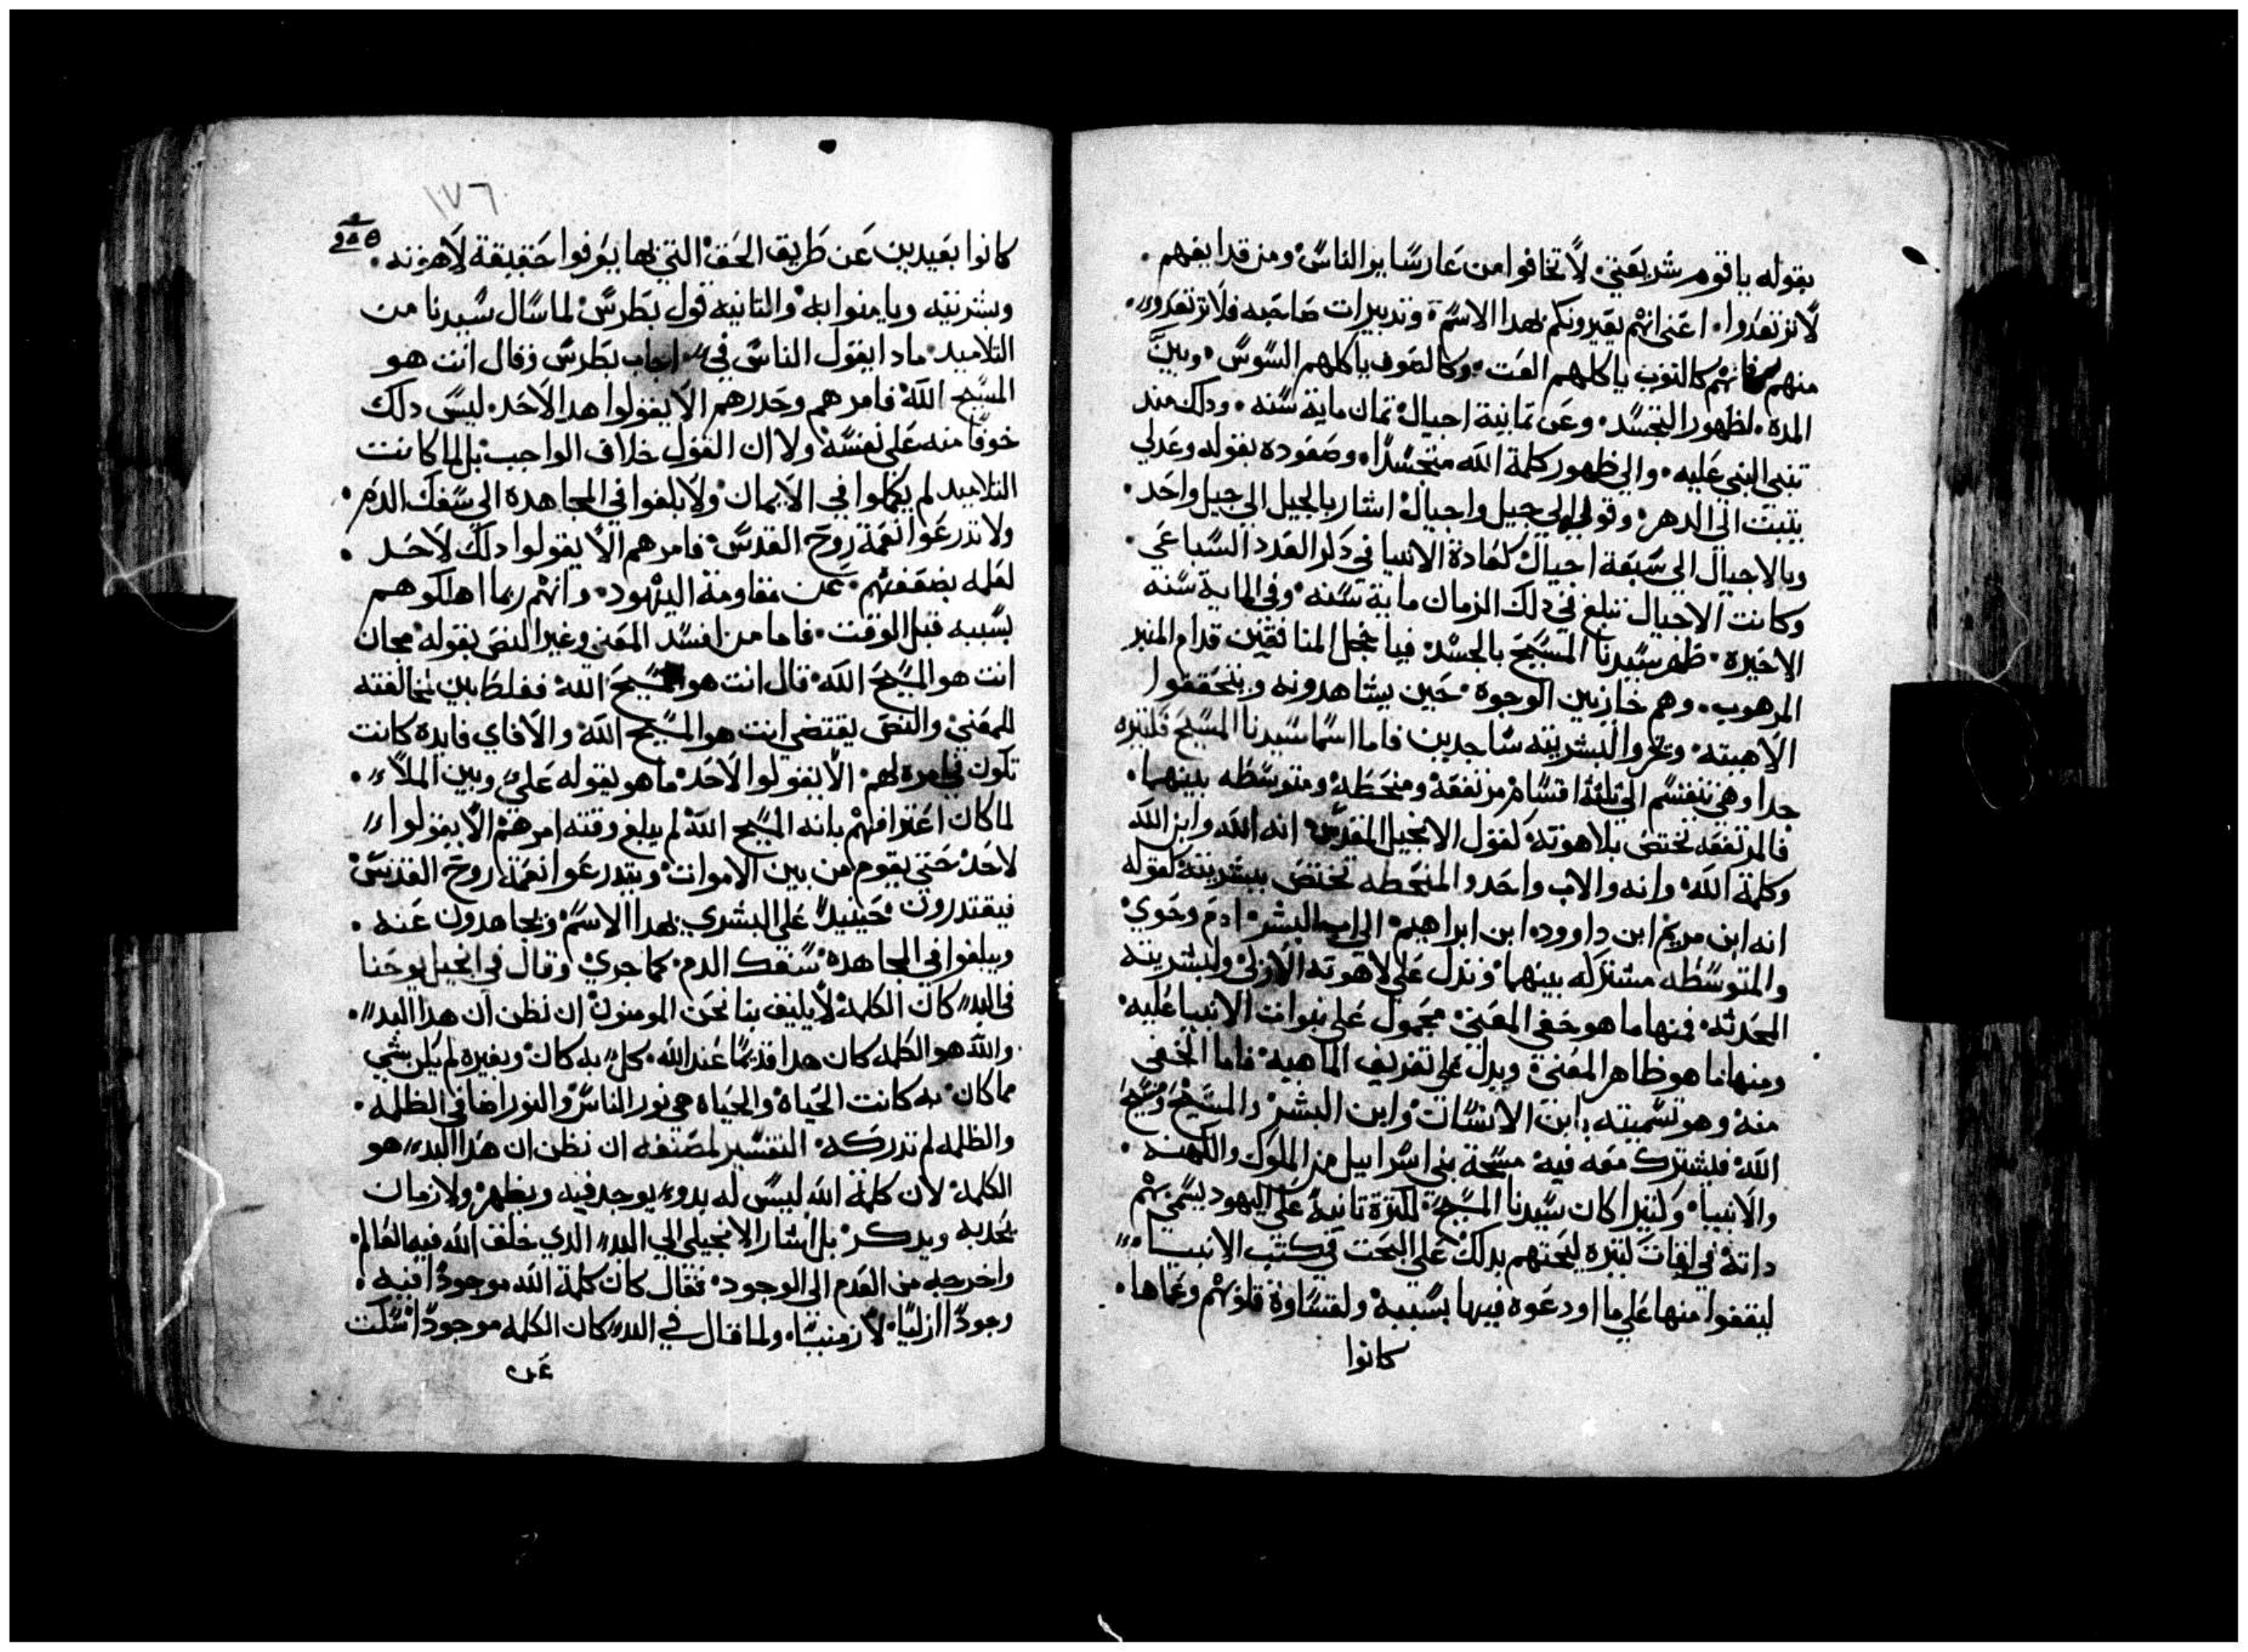 يقوله يا قوم شريعتي لا تخافوا من عار ساير الناس ومن قدايفهم
لا ترتعدوا اعني انهم يعيرونكم بهدا الاسم وتدبيرات صاحبه فلا ترتعدوا
منهم فانهم كالثوب ياكلهم العت وكالصوف ياكلهم السوس وبين
المدة لظهور التجسد وعن تمانية اجيال تمان ماية سنه ودلك مند
تنبى النبي عليه والي ظهور كلمة الله متجسدا وصعوده بقوله وعدلي
يتبت الي الدهر وقولي الي جيل واجيال اشار بالجيل الي جيل واحد
وبالاجيال الي سبعة اجيال كعادة الانبيا في دكر العدد السباعي
وكانت الاجيال تبلغ في دلك الزمان ماية سنه وفي الماية سنه
الاخيره ظهر سيدنا المسيح بالجسد فيا خجل المنافقين قدام المنبر
المرهوب وهم خازيين الوجوه حين يشاهدونه ويتحققوا
الاهيته ويخروا لبشريته ساجدين فاما اسما سيدنا المسيح فكتيره
جدا وهي تنقسم الي تلتة اقسام مرتفعه ومنحطه ومتوسطه بينهما
فالمرتفعه تختص بلاهوته لقول الانجيل المقدس انه الله وابن الله
وكلمة الله وانه والاب واحد والمنحطه تختص ببشريته كقوله
انه ابن مريم ابن داوود ابن ابراهيم الي اب البشر ادم وحوي
والمتوسطه مشتركه بينهما وتدل علي لاهوته الازلي ولبشريته
المحدثه فمنها ما هو خفي المعني محمول علي نبوات الانبيا عليه
ومنها ما هو ظاهر المعني ويدل علي تعريف الماهيه فاما الخفي
منه وهو تسميته بابن الانسان وابن البشر والمسيح ومسيح
الله فيشترك معه فيه مسحة بني اسراييل من الملوك والكهنه
والانبيا وكتيرا كان سيدنا المسيح لكترة تانيه علي اليهود يسمي بهم
داته في لغات كتيره ليحتهم بدلك علي البحت في كتب الانبيا
ليقفوا منها علي ما اودعوه فيها بسببه ولقساوة قلوبهم وعماها
كانوا
١٧٦
كانوا بعيدين عن طريق الحق التي بها يعرفوا حقيقة لاهوته
وبشريته ويامنوا به والتانيه قول بطرس لما سال سيدنا من
التلاميد مادا يقول الناس في اجاب بطرس وقال انت هو
المسيح الله فامرهم وحدرهم الا يقولوا هدا لاحد ليس دلك
خوفا منه علي نفسه ولا ان القول خلاف الواجب بل لما كانت
التلاميد لم يكملوا في الايمان ولا بلغوا في المجاهدة الي سفك الدم
ولا تدرعوا نعمة روح القدس فامرهم الا يقولوا دلك لاحد
لعلمه بضعفهم عن مقاومة اليهود وانهم ربما اهلكوهم
بسببه قبل الوقت فاما من افسد المعني وغير النص بقوله مجان
انت هو المسيح الله قال انت هو المسيح الله فغلط بين لمخالفته
للمعني والنص يقتضي انت هو المسيح الله والا فاي فايدة كانت
تكون في امره لهم الا يقولوا لاحد ما هو يقوله علي وبين الملاء
لما كان اعترافهم بانه المسيح الله لم يبلغ وقته امرهم الا يقولوا
لاحد حتي يقوم من بين الاموات ويتدرعوا نعمة روح القدس
فيقتدرون حينيد علي البشري بهدا الاسم ويجاهدون عنه
ويبلغوا في المجاهدة سفك الدم كما جري وقال في انجيل يوحنا
في البدء كان الكلمة لا يليق بنا نحن المومنون ان نظن ان هدا البدء
والله هو الكلمه كان هدا قديما عند الله كل به كان وبغيره لم يكن شي
مما كان به كانت الحياه والحياه هي نور الناس والنور اضا في الظلمه
والظلمه لم تدركه التفسير لمصنفه ان نظن ان هدا البدء هو
الكلمة لان كلمة الله ليس له بدو يوجد فيه ويظهر ولا زمان
يحد به ويدكر بل اشار الانجيلي الي البدء الدي خلق الله فيه العالم
واخرجه من العدم الي الوجود فقال كان كلمة الله موجودا فيه
وجودا ازليا لا زمنيا ولما قال في البدء كان الكلمه موجودا سكت
عن